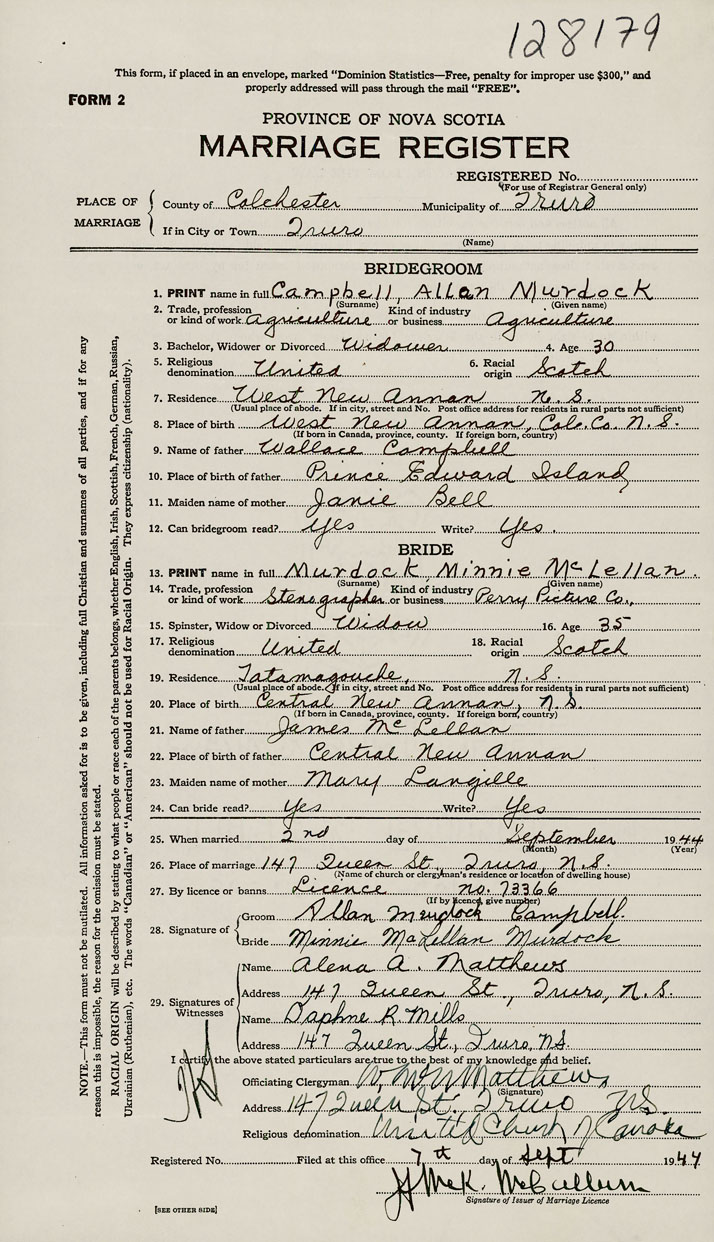 128179
This form, if placed in an envelope, marked "Dominion Statistics—Free, penalty for improper use $300," and
properly addressed will pass through the mail "FREE".
FORM 2
PROVINCE OF NOVA SCOTIA
MARRIAGE REGISTER
REGISTERED No.
(For use of Registrar General only)
PLACE OF MARRIAGE
County of Colchester Municipality of Truro
If in City or Town Truro
(Name)
BRIDEGROOM
1. PRINT name in full Campbell, Allan Murdock
(Surname) (Given name)
2. Trade, profession or kind of work agriculture Kind of industry or business Agriculture
3. Bachelor, Widower or Divorced Widower 4. Age 30
5. Religious denomination United 6. Racial origin Scotch
7. Residence West New Annan N.S.
(Usual place of abode. If in city, street and No. Post office address for residents in rural parts not sufficient)
8. Place of birth West New Annan, Col. Co. N.S.
(If born in Canada, province, county. If foreign born, country)
9. Name of father Wallace Campbell
10. Place of birth of father Prince Edward Island,
11. Maiden name of mother Janie Bell
12. Can bridegroom read? Yes Write? Yes.
BRIDE
13. PRINT name in full Murdock, Minnie McLellan.
(Surname) (Given name)
14. Trade, profession or kind of work Stenographer Kind of industry or business Perry Picture Co.,
15. Spinster, Widow or Divorced Widow 16. Age 35
17. Religious denomination United 18. Racial origin Scotch
19. Residence Tatamagouche, N.S.
(Usual place of abode. If in city, street and No. Post office address for residents in rural parts not sufficient)
20. Place of birth Central New Annan, N.S.
(If born in Canada, province, county. If foreign born, country)
21. Name of father James McLellan
22. Place of birth of father Central New Annan
23. Maiden name of mother Mary Langille
24. Can bride read? Yes Write? Yes
25. When married 2nd day of September 1944
(Month) (Year)
26. Place of marriage 147 Queen St., Truro, N.S.
(Name of church or clergyman's residence or location of dwelling house)
27. By licence or banns Licence no. 73366
(If by licence, give number)
28. Signature of
Groom Allan Murdock Campbell.
Bride Minnie McLellan Murdock
29. Signatures of Witnesses
Name Alena A. Matthews
Address 147 Queen St., Truro, N.S.
Name Daphne R. Mills
Address 147 Queen St., Truro, N.S.
I certify the above stated particulars are true to the best of my knowledge and belief.
Officiating Clergyman Matthews
(Signature)
Address 147 Queen St. Truro N.S.
Religious denomination United Church of Canada
Registered No. Filed at this office 7th day of Sept 1944
McK. McCallum
Signature of Issuer of Marriage Licence
[SEE OTHER SIDE]
NOTE.—This form must not be mutilated. All information asked for is to be given, including full Christian and surnames of all parties, and if for any
reason this is impossible, the reason for the omission must be stated.
RACIAL ORIGIN will be described by stating to what people or race each of the parents belongs, whether English, Irish, Scottish, French, German, Russian,
Ukrainian (Ruthenian), etc. The words "Canadian" or "American" should not be used for Racial Origin. They express citizenship (nationality).